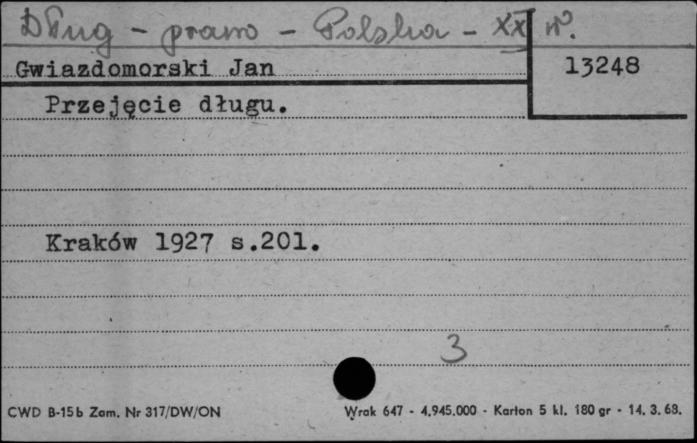 Dług - prawo - Polska - XX w.
Gwiazdomorski Jan
13248
Przejęcie długu.
Kraków 1927 s.201.
3
CWD B-15b Zam. Nr 317/DW/ON
Wrak 647 - 4,945.000 - Karton 5 kl. 180 gr - 14. 3. 68.